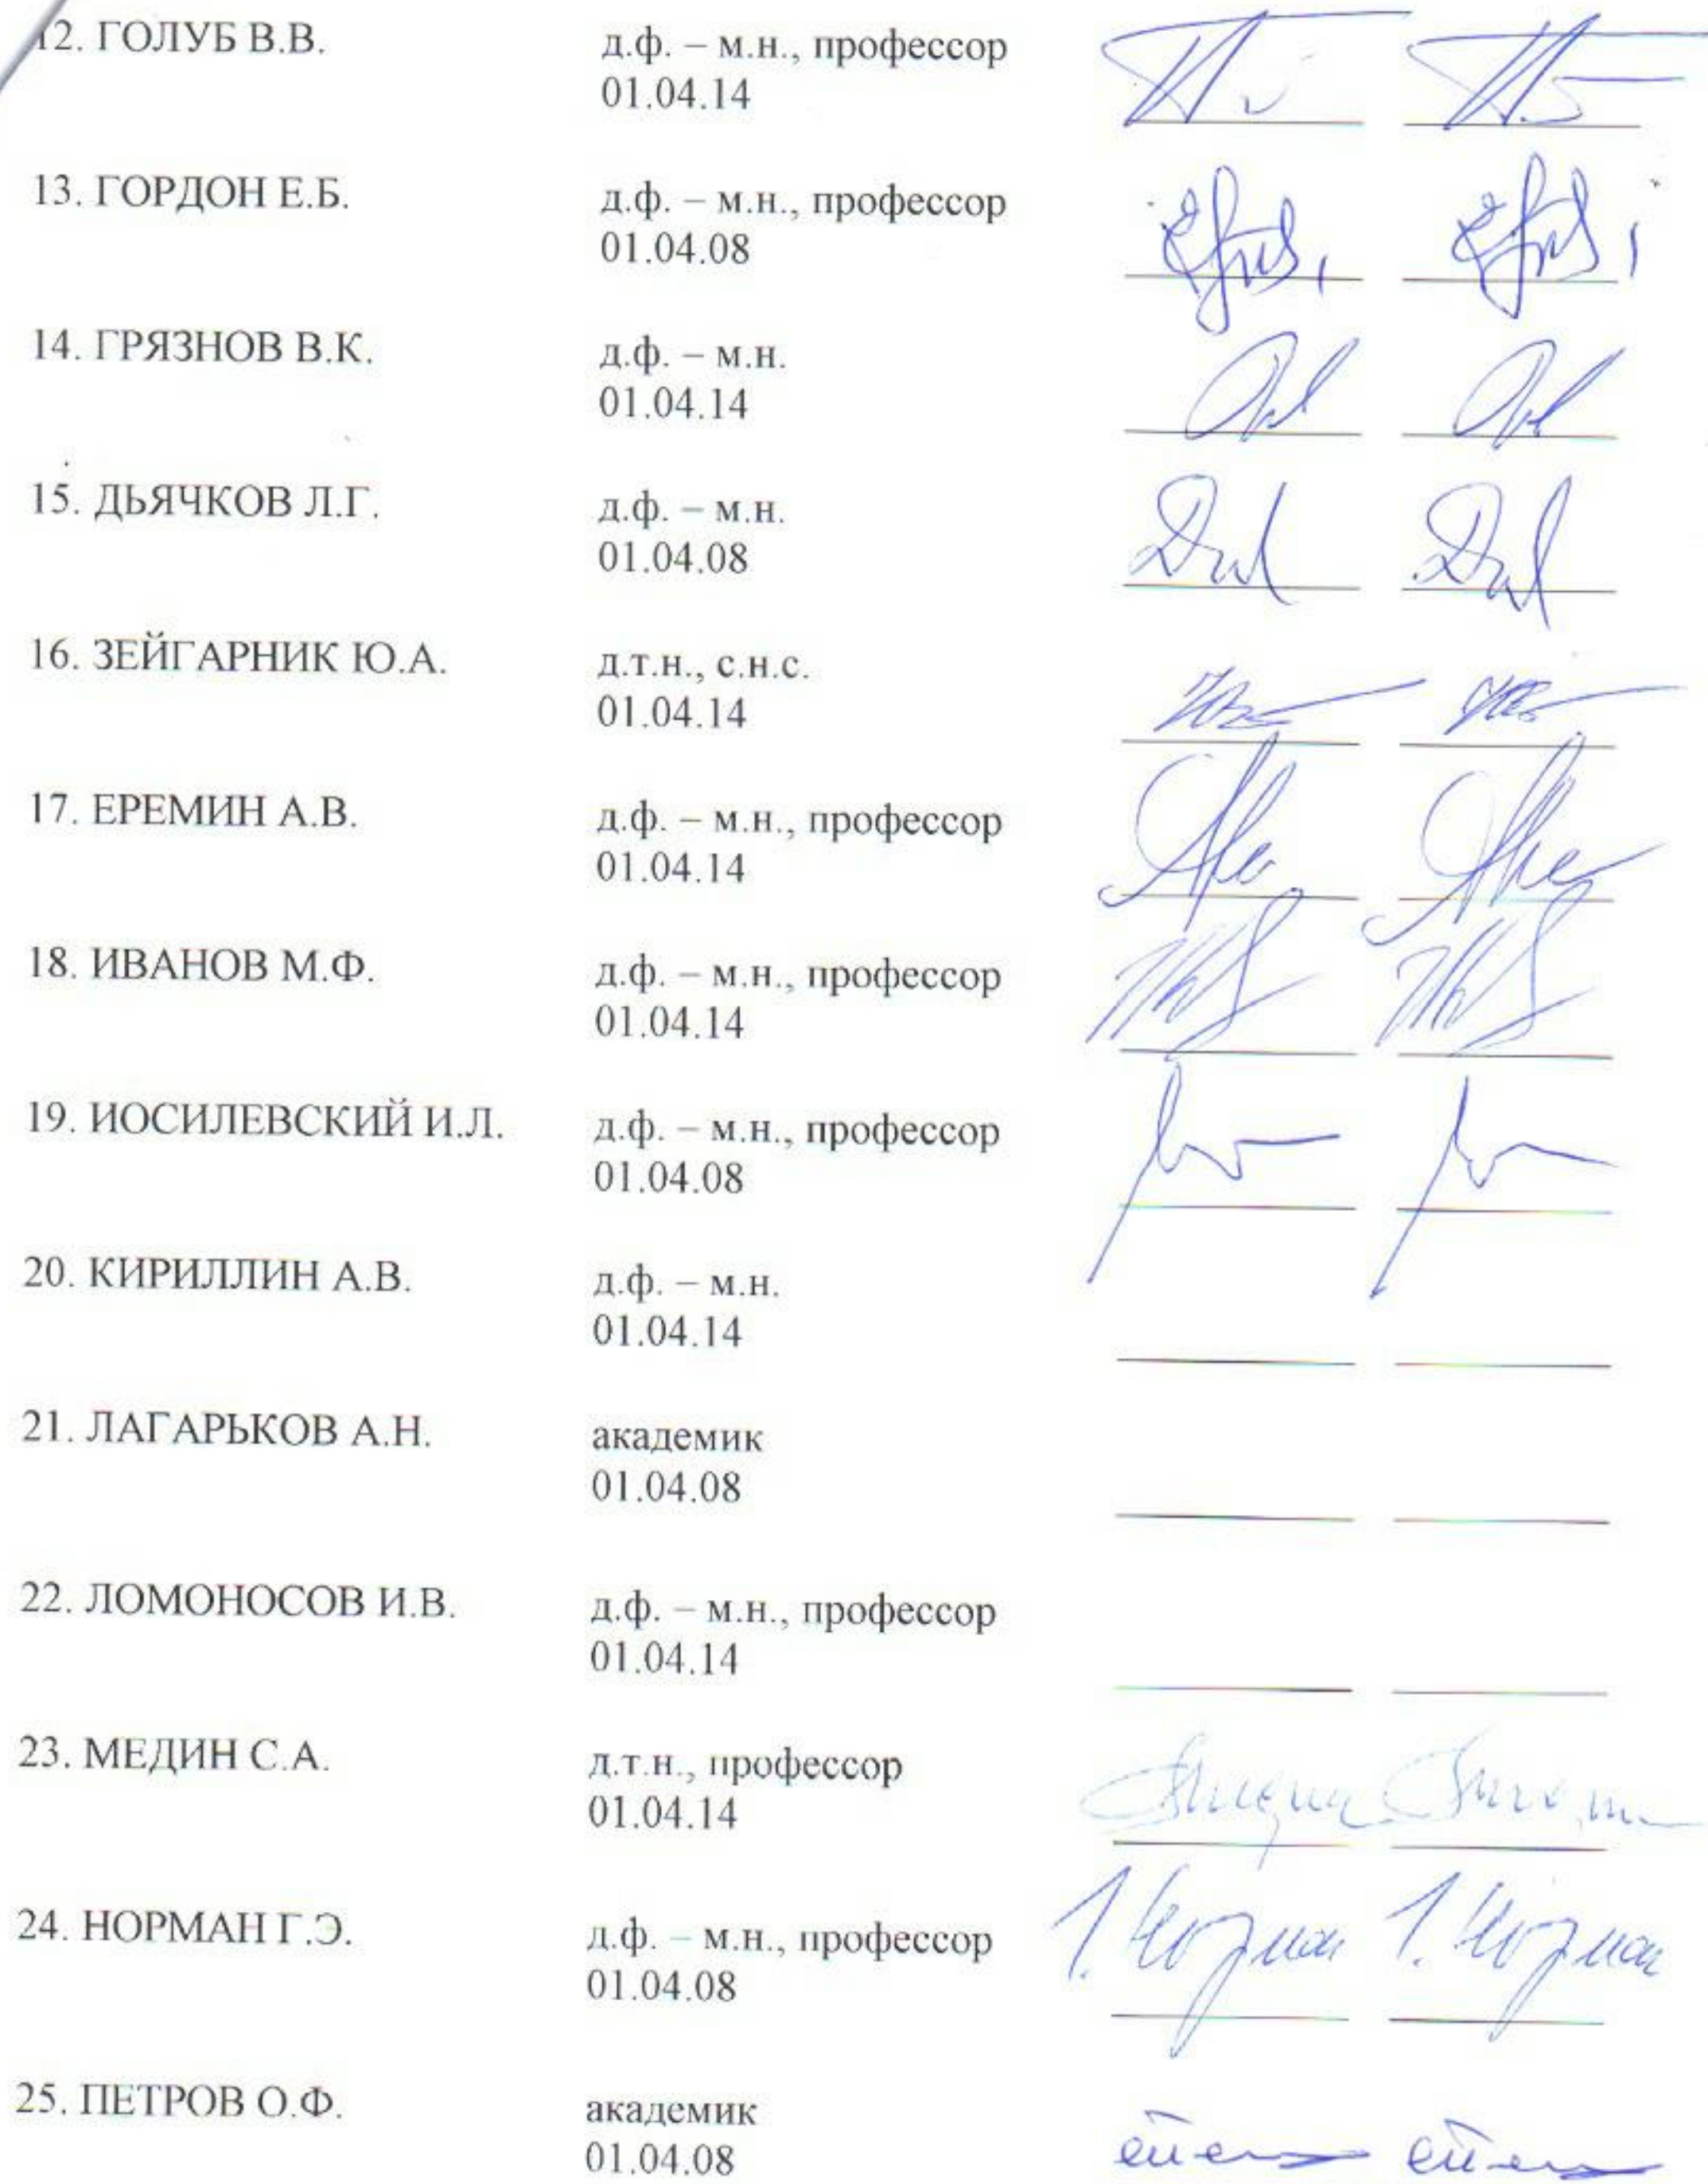 12. ГОЛУБ В.В. д.ф. – м.н., профессор
01.04.14
13. ГОРДОН Е.Б. д.ф. – м.н., профессор
01.04.08
14. ГРЯЗНОВ В.К. д.ф. – м.н.
01.04.14
15. ДЬЯЧКОВ Л.Г. д.ф. – м.н.
01.04.08
16. ЗЕЙГАРНИК Ю.А. д.т.н., с.н.с.
01.04.14
17. ЕРЕМИН А.В. д.ф. – м.н., профессор
01.04.14
18. ИВАНОВ М.Ф. д.ф. – м.н., профессор
01.04.14
19. ИОСИЛЕВСКИЙ И.Л. д.ф. – м.н., профессор
01.04.08
20. КИРИЛЛИН А.В. д.ф. – м.н.
01.04.14
21. ЛАГАРЬКОВ А.Н. академик
01.04.08
22. ЛОМОНОСОВ И.В. д.ф. – м.н., профессор
01.04.14
23. МЕДИН С.А. д.т.н., профессор
01.04.14
24. НОРМАН Г.Э. д.ф. – м.н., профессор Г. Норман Г. Норман
01.04.08
25. ПЕТРОВ О.Ф. академик
01.04.08